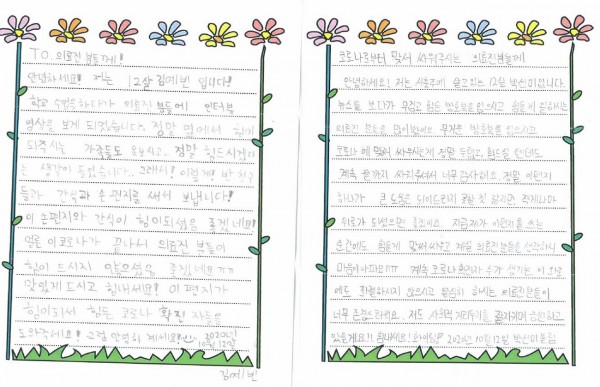 TO. 의료진 분들께!
안녕하세요! 저는 12살 김예빈 입니다!
학교 수업을 하다가 의료진 분들에 인터뷰
영상을 보게 되었습니다. 정말 옆에서 힘이
되주시는 가족들도 못보시고.. 정말 힘드시겠다
는 생각이 들었습니다.. 그래서! 이렇게! 반 친구
들과 간식과 손편지를 써서 보냅니다!
이 손편지와 간식이 힘이되셨음 좋겠네요!
얼른 이 코로나가 끝나서 의료진 분들이
힘이 드시지 않으셨음 좋겠네요ㅠㅠ
맛있게 드시고 힘내세요! 이 편지가
힘이되서 힘든 코로나 확진 자들을
도와주세요! 그럼 안녕히 계세요! 2020년 10월 12일
김예빈
코로나로부터 맞서 싸워주시는 의료진분들께
안녕하세요! 저는 서울에 살고있는 12살 박선미입니다.
뉴스를 보다가 무겁고 힘든 방호복을 입으시고 힘들게 일하시는
의료진 분들을 많이봤어요. 무거운 방호복을 입으시고
코로나에 맞서 싸우시는게 정말 두렵고, 힘드실 텐데도
계속 끝까지 싸워주셔서 너무 감사해요. 정말 이편지
하나가 큰 도움은 되어드리지 못할 것 같지만 작게나마
위로가 되었으면 좋겠네요. 지금 제가 이편지를 쓰는
순간에도 힘들게 맞서 싸우고 계실 의료진분들을 생각하니
마음이 아파요ㅠㅠ 계속 코로나 확진자 수가 생기는 이 와중
에도 좌절하시지 않으시고 열심히 하시는 의료진분들이
너무 존경스러워요. 저도 사회적 거리두기를 잘지키며 응원하고
있을게요!! 힘내세요! 화이팅! 2020년 10월 12일 박선미 올림